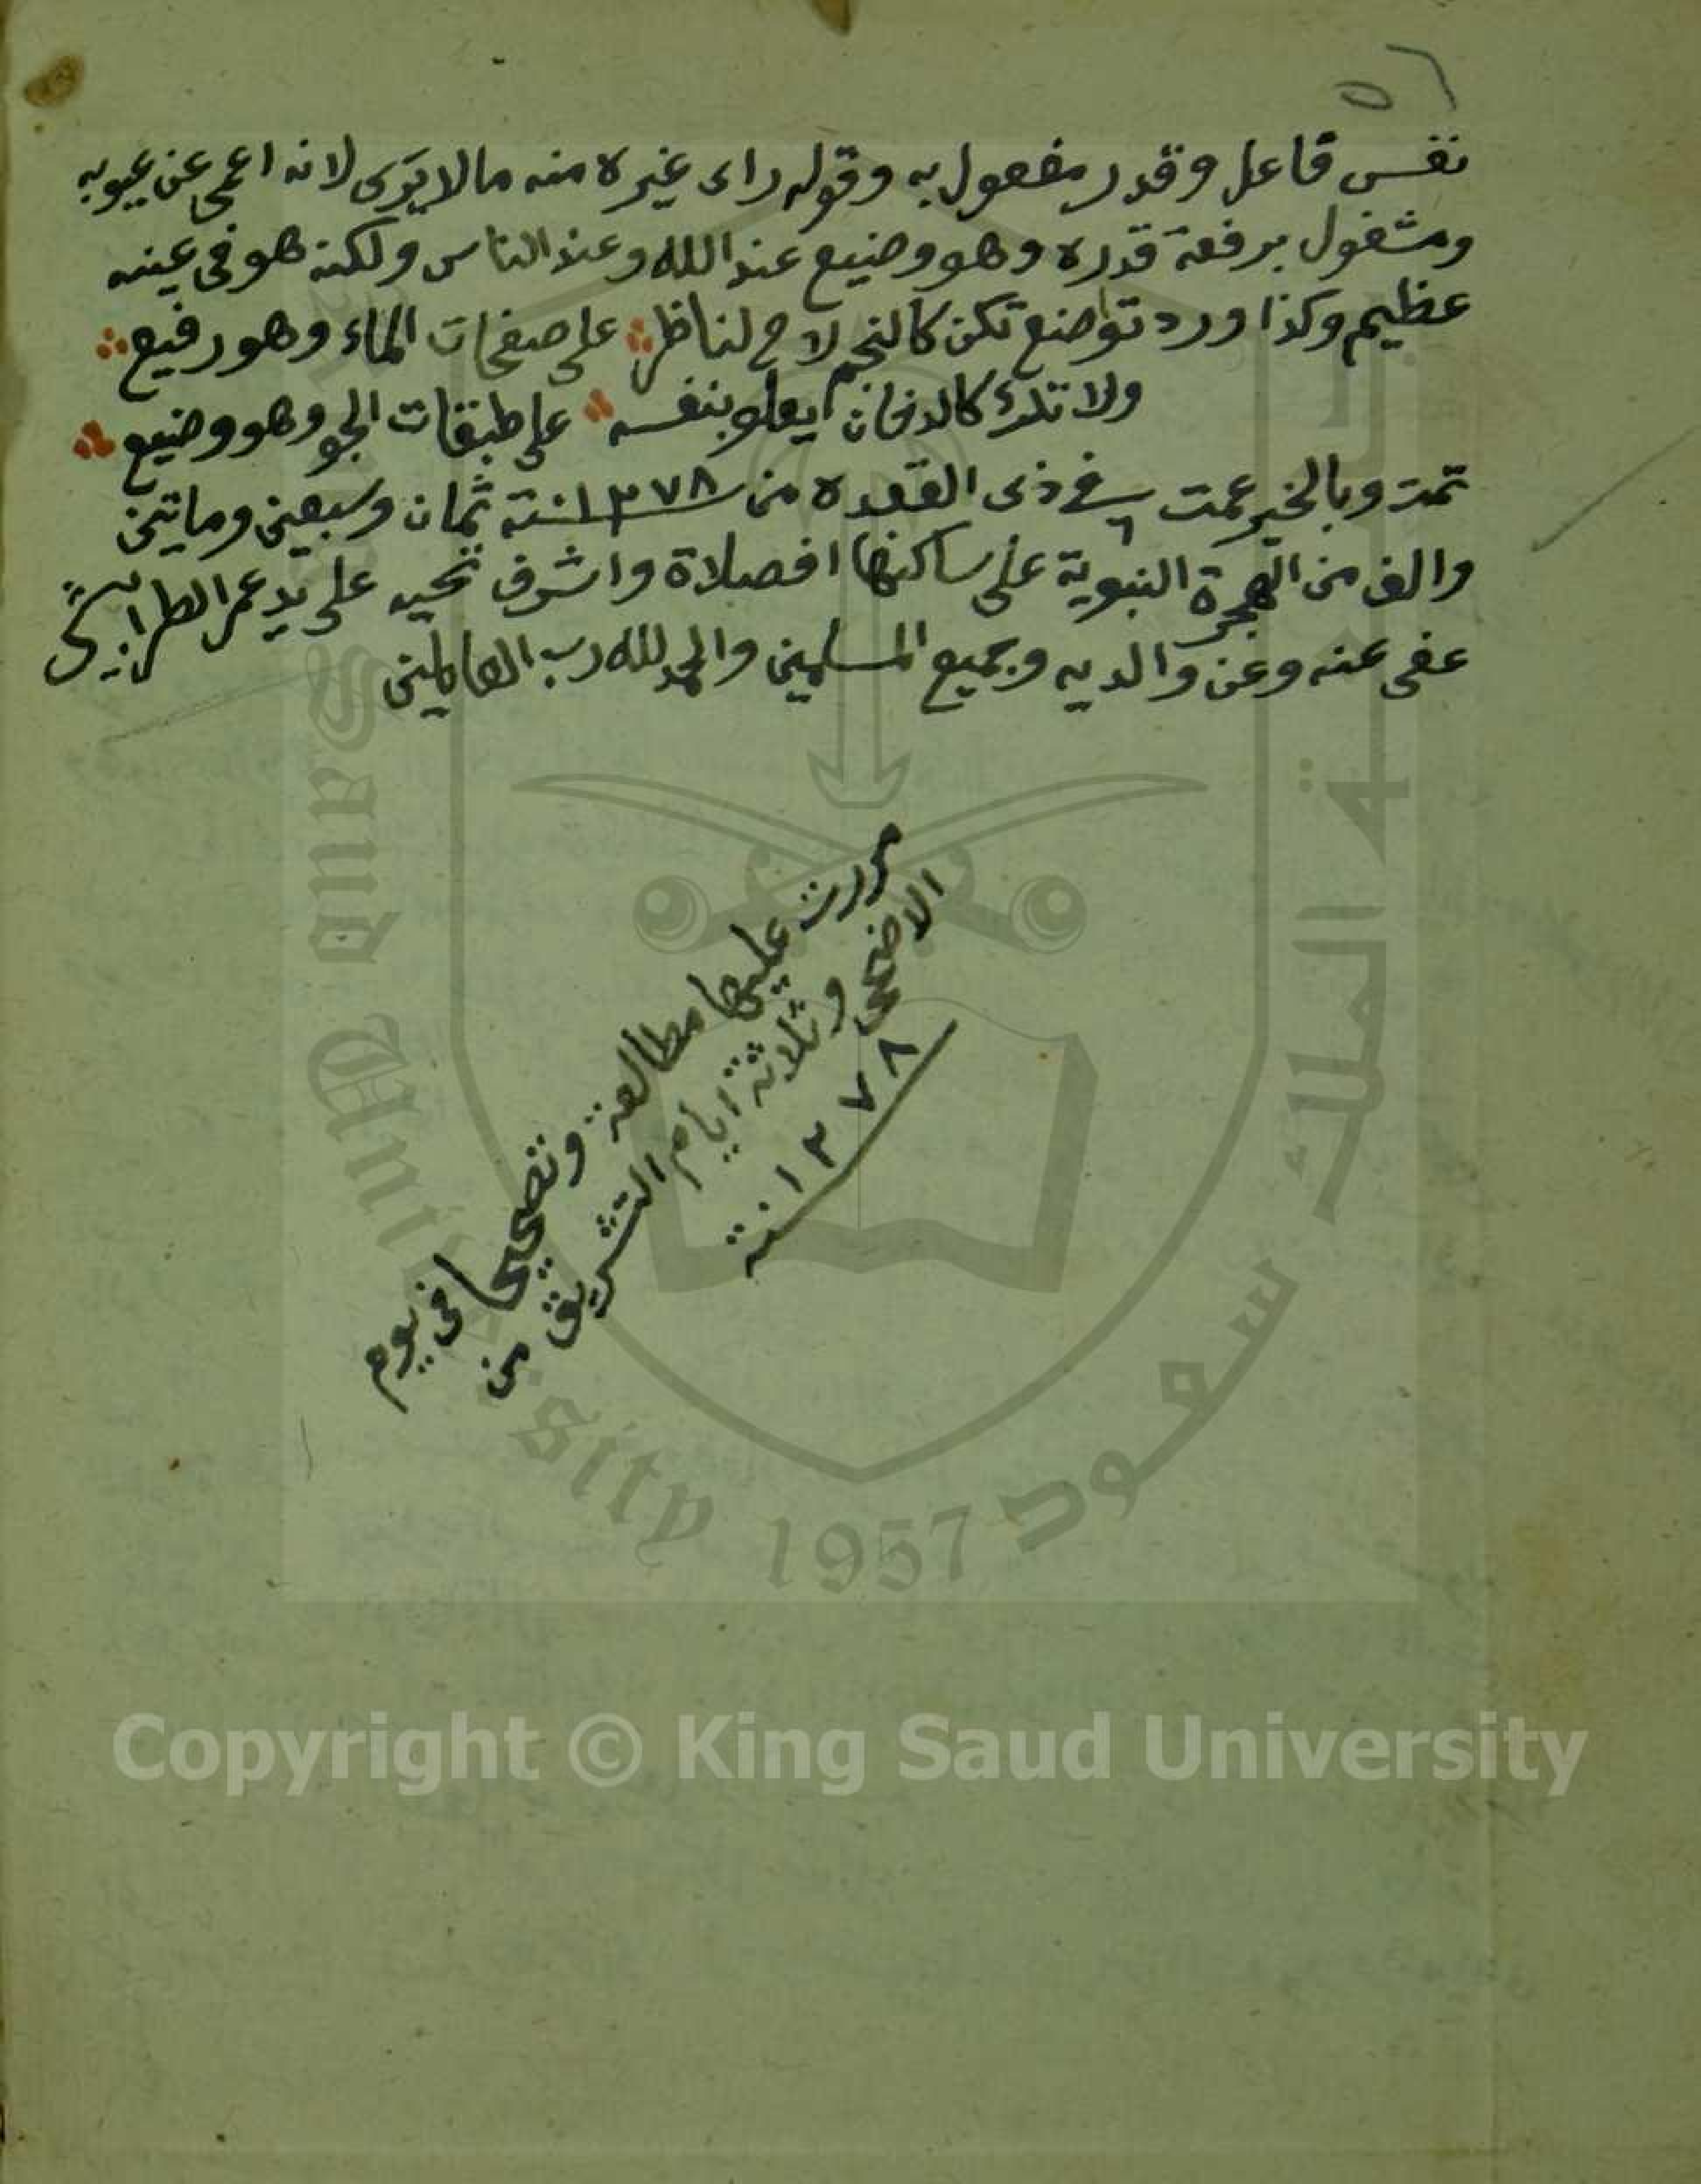 ٥٦
نفس فاعل وقدر مفعول به وقوله راى غيره منه مالا يرى لانه اعمى عن عيوبه
ومشغول برفعة قدره وهو وضيع عند الله وعند الناس ولكنه هو فى عينه
عظيم وكذا ورد تواضع تكن كالنجم لاح لناظر على صفحات الماء وهو رفيع
ولا تك كالدخان يعلو بنفسه على طبقات الجو وهو وضيع
تمت وبالخير عمت فى ٦ ذى القعده من ١٢٧٨ سنة ثمان وسبعين وماتين
والف من الهجرة النبوية على ساكنها افصلاة واشرف تحيه على يد عمر الطرابيشي
عفى عنه وعن والديه وجميع المسلمين والحمد لله رب العالمين
مررت عليها مطالعة وتصحيحا فى يوم
الاضحى وثلاثة ايام التشريق من
١٢٧٨ سنة
جامعة الملك سعود
King Saud University 1957
Copyright © King Saud University